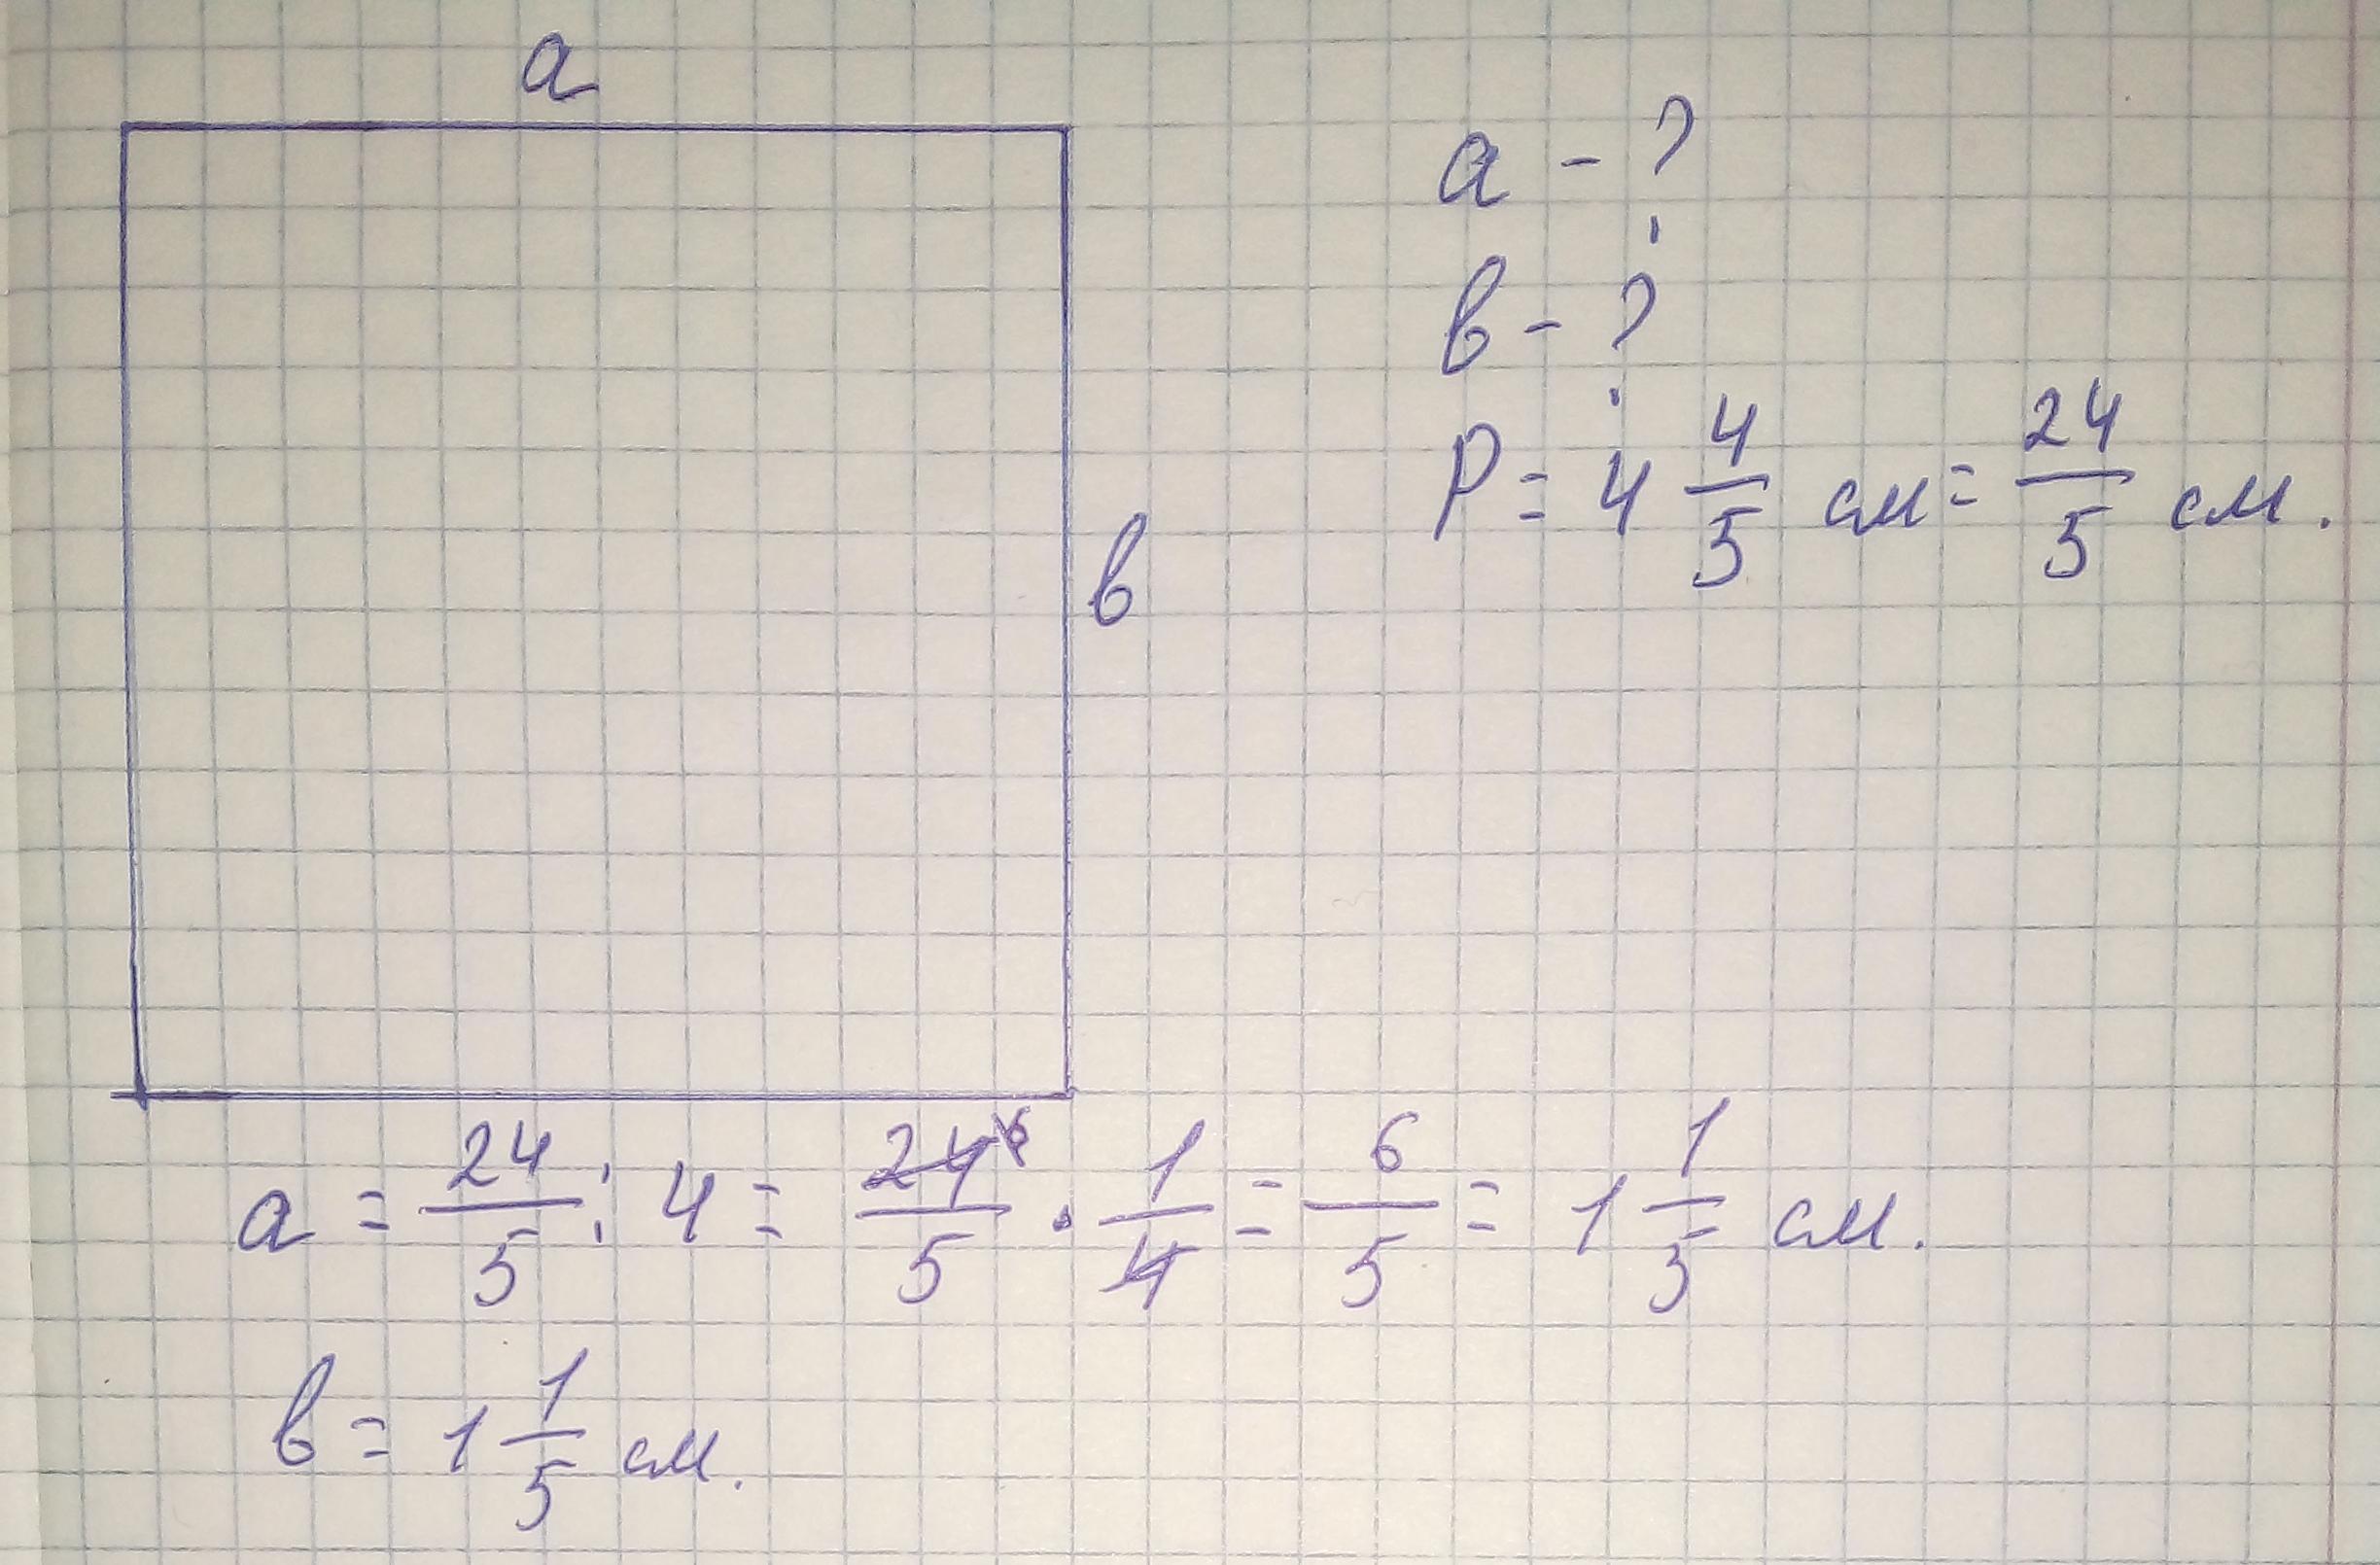 а
а - ?
в - ?
в
P = 4 4/5 см = 24/5 см.
а = 24/5 : 4 = 24⁶/5 · 1/4 = 6/5 = 1 1/5 см.
в = 1 1/5 см.